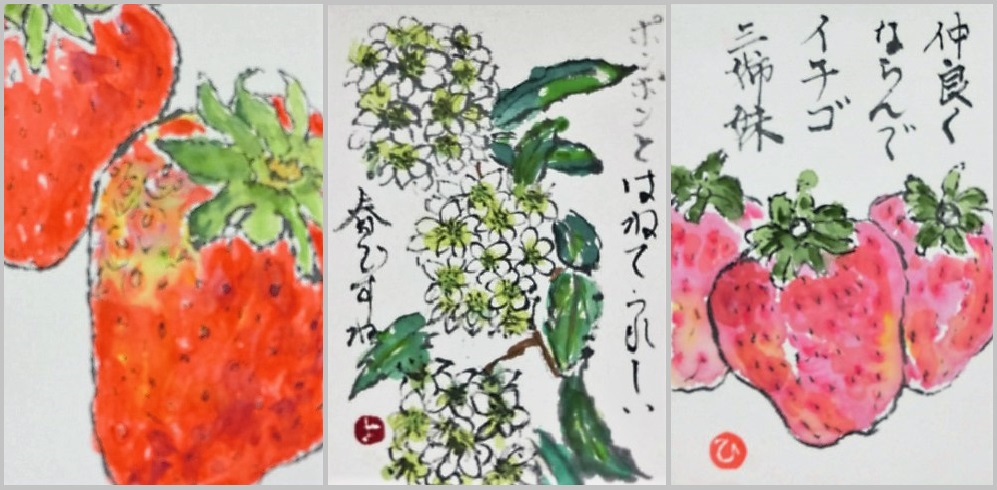 ポンポンと
はねてうれしい
春ですね
仲良く
ならんで
イチゴ
三姉妹
ひ